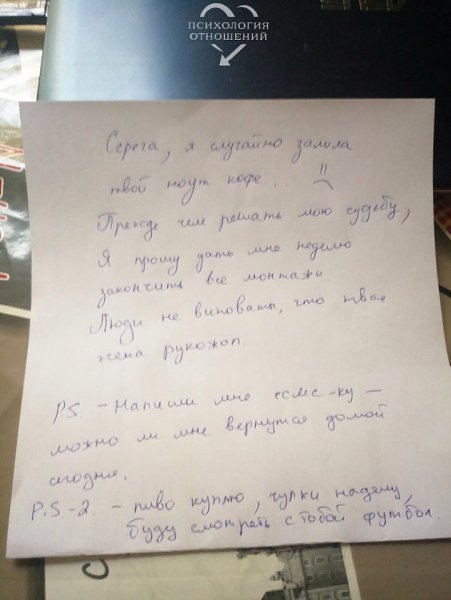 ПСИХОЛОГИЯ
ОТНОШЕНИЙ
Серега, я случайно залила
твой ноут кофе..
Прежде чем решать мою судьбу,
Я прошу дать мне неделю
закончить все монтажи.
Люди не виноваты, что твоя
жена рукожоп.
P.S. - Напиши мне смс-ку -
можно ли мне вернутся домой
сегодня.
P.S-2. - пиво куплю, чулки надену,
буду смотреть с тобой футбол.